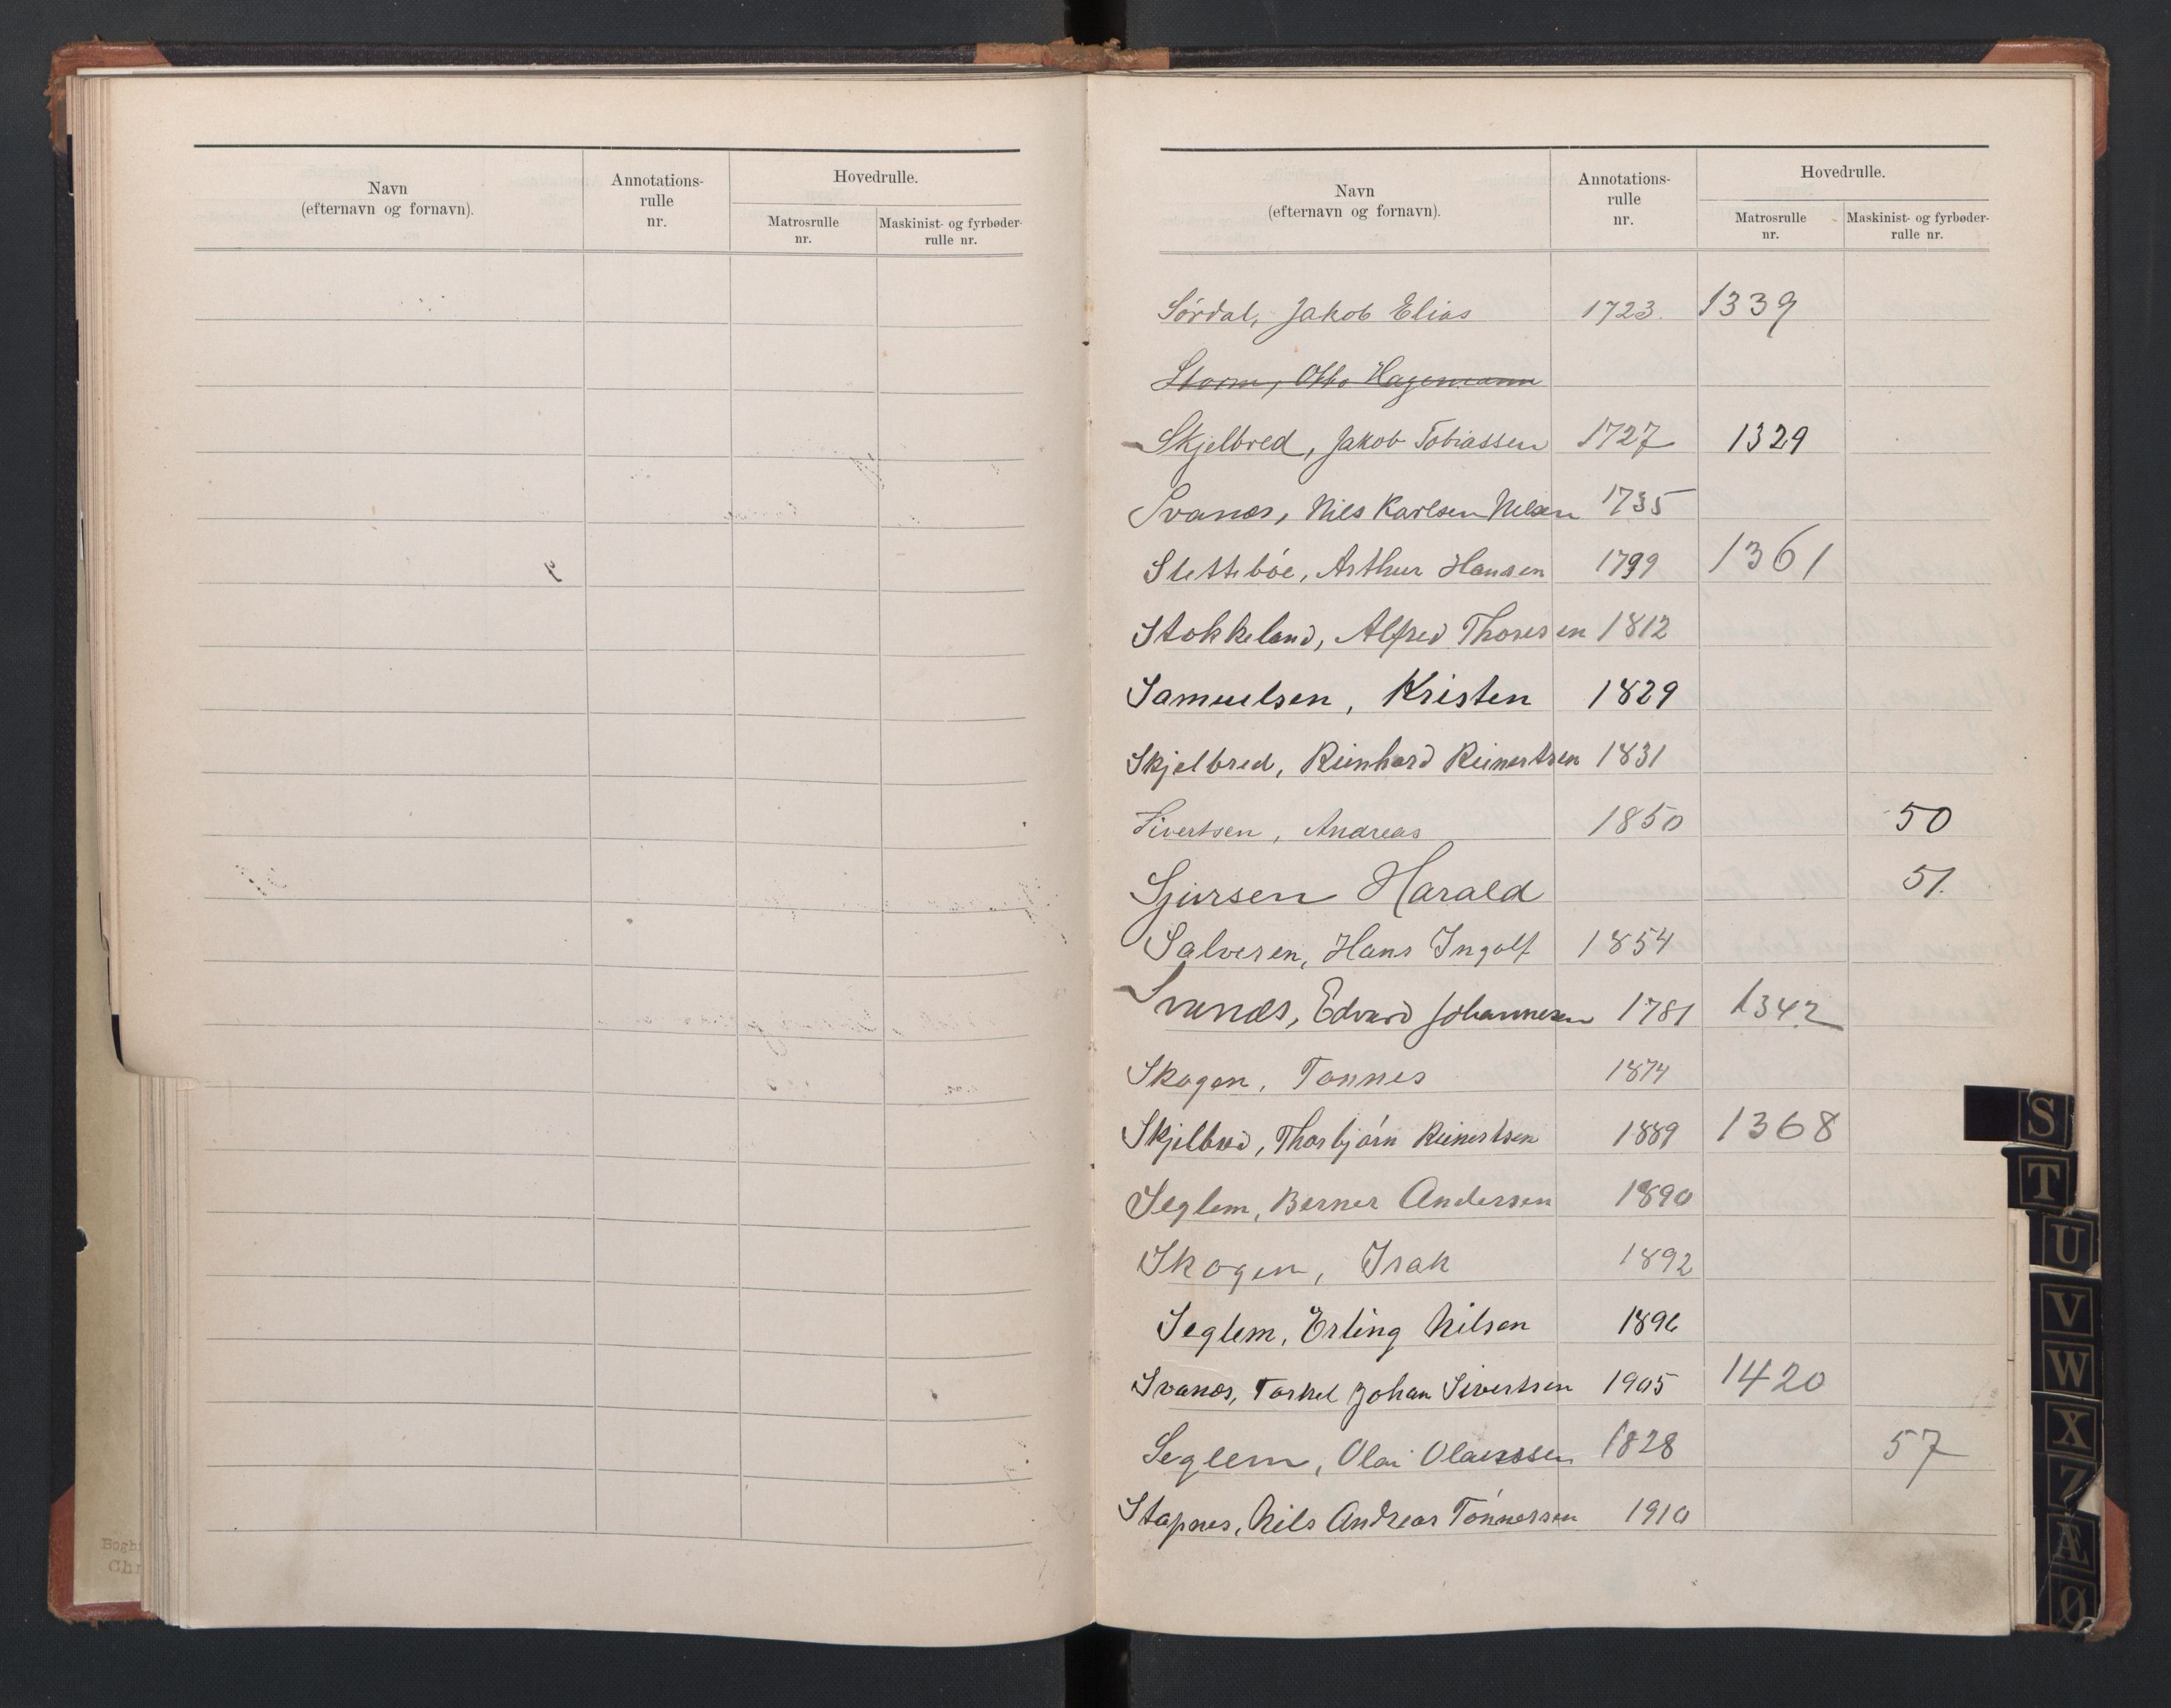 Navn
(efternavn og fornavn).
Annotations-
rulle
nr.
Hovedrulle.
Matrosrulle
nr.
Maskinist- og fyrbøder-
rulle nr.
Navn
(efternavn og fornavn).
Annotations-
rulle
nr.
Hovedrulle.
Matrosrulle
nr.
Maskinist- og fyrbøder-
rulle nr.
Sørdal, Jakob Elias 1723. 1339
Storm, Otto Hagemann
Skjelbred, Jakob Tobiassen 1727 1329
Svanæs, Nils Karlsen Nelsen 1735
Slettebøe, Arthur Hansen 1799 1361
Stokkeland, Alfred Thorsen 1812
Samuelsen, Kristen 1829
Skjelbred, Reinhard Reinertsen 1831
Sivertsen, Andreas 1850 50
Sjursen Harald 51.
Salvesen, Hans Ingolf 1854
Svanæs, Edvard Johannesen 1781 1342
Skogen, Tønnes 1874
Skjelbred, Thorbjørn Reinertsen 1889 1368
Seglem, Berner Andersen 1890
Skogen, Isak 1892
Seglem, Erling Nilsen 1896
Svanæs, Torkel Johan Sivertsen 1905 1420
Seglem, Olai Olaussen 1828 57
Stapnes, Nils Andreas Tønnessen 1910
S
T
U
V
W
X
Z
Æ
Ø